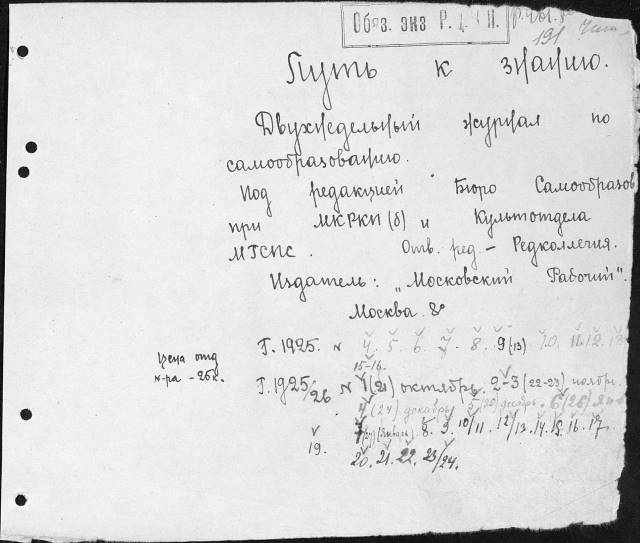 Обяз. экз
191
Путь к знанию.
Двухнедельный журнал по
самообразованию.
Под редакцией Бюро Самообразов
при МКРКП(б) и Культотдела
МГСПС. Отв. ред – Редколлегия.
Издатель: „Московский Рабочий".
Москва 8°
Г. 1925. № 4. 5. 6. 7. 8. 9(13) 10. 11. 12.
15-16.
Цена отд
№-ра - 25к.
Г. 1925/26 № 1(21) октябрь. 2-3 (22-23) ноябрь.
4(24) декабрь 5(25) декабрь. 6(26)
7 (январь) 8. 9. 10/11. 12/13. 14. 15. 16. 17.
19.
20. 21. 22. 23/24.